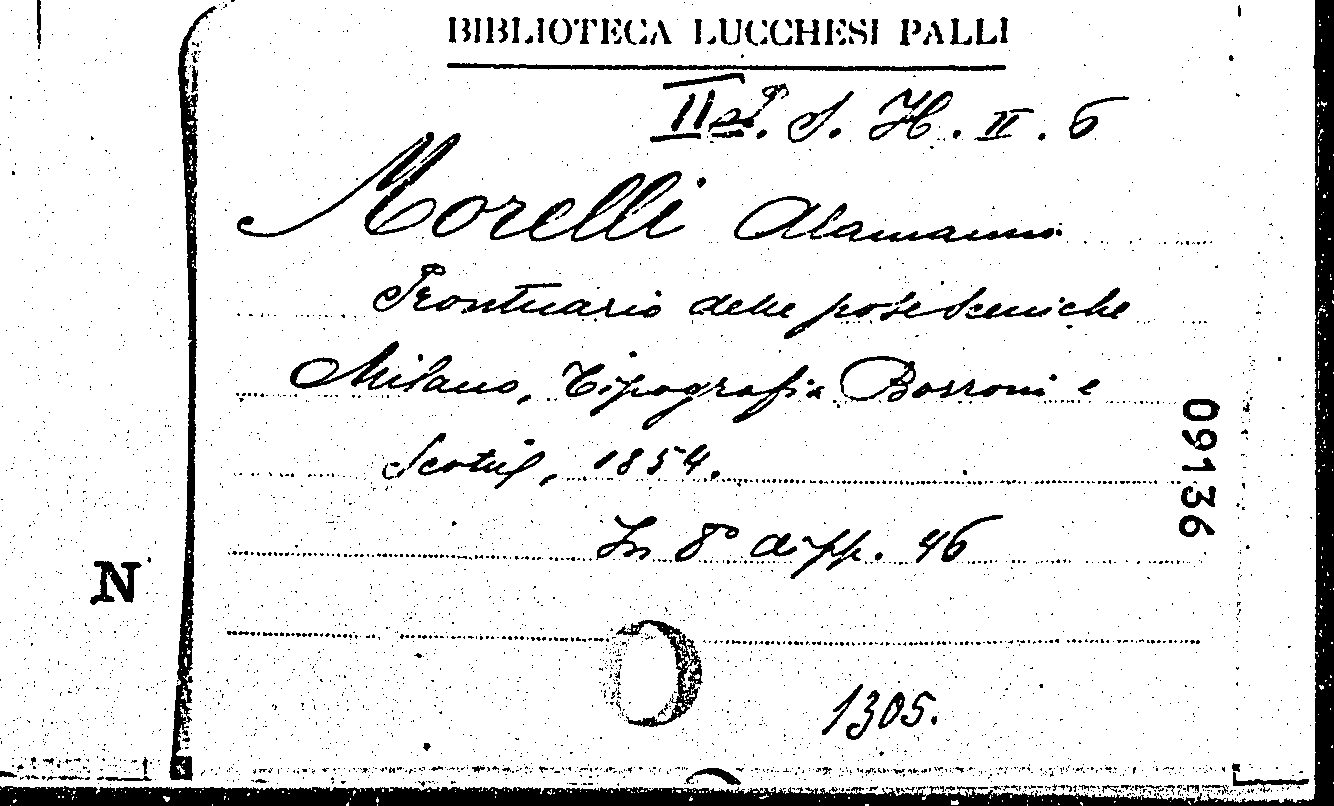 BIBLIOTECA LUCCHESI PALLI
II sap. S. H. II. 6
Morelli Alamanno
Prontuario delle pose sceniche
Milano, Tipografia Borroni e
Scotti, 1854.
In 8° di pp. 46
1305.
09136
N